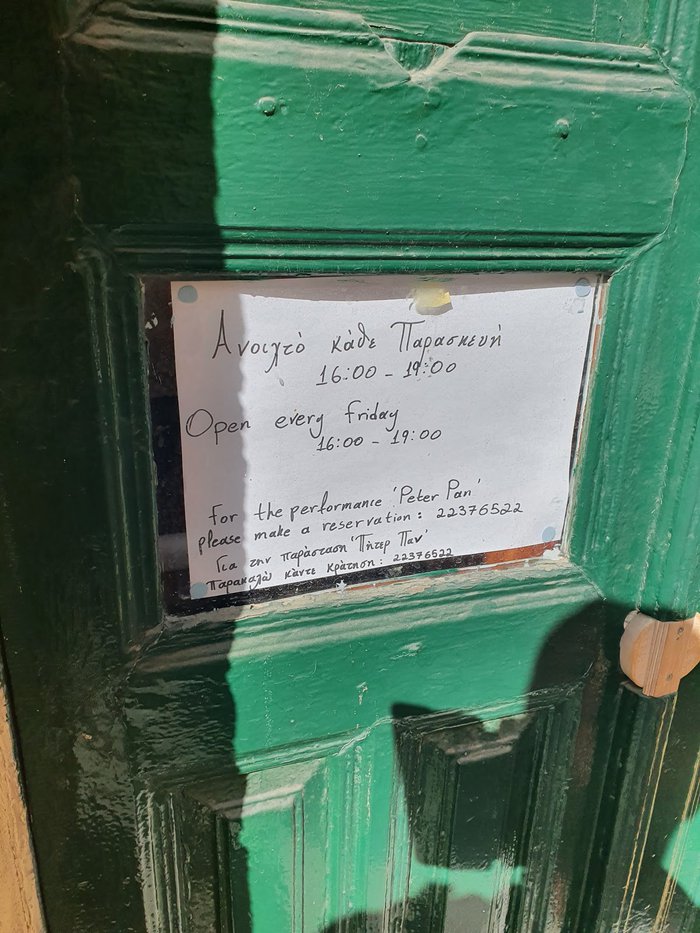 Ανοιχτό κάθε Παρασκευή
16:00 - 19:00
Open every friday
16:00 - 19:00
for the performance 'Peter Pan'
please make a reservation: 22376522
Για την παράσταση 'Πήτερ Παν'
παρακαλώ κάντε κράτηση: 22376522